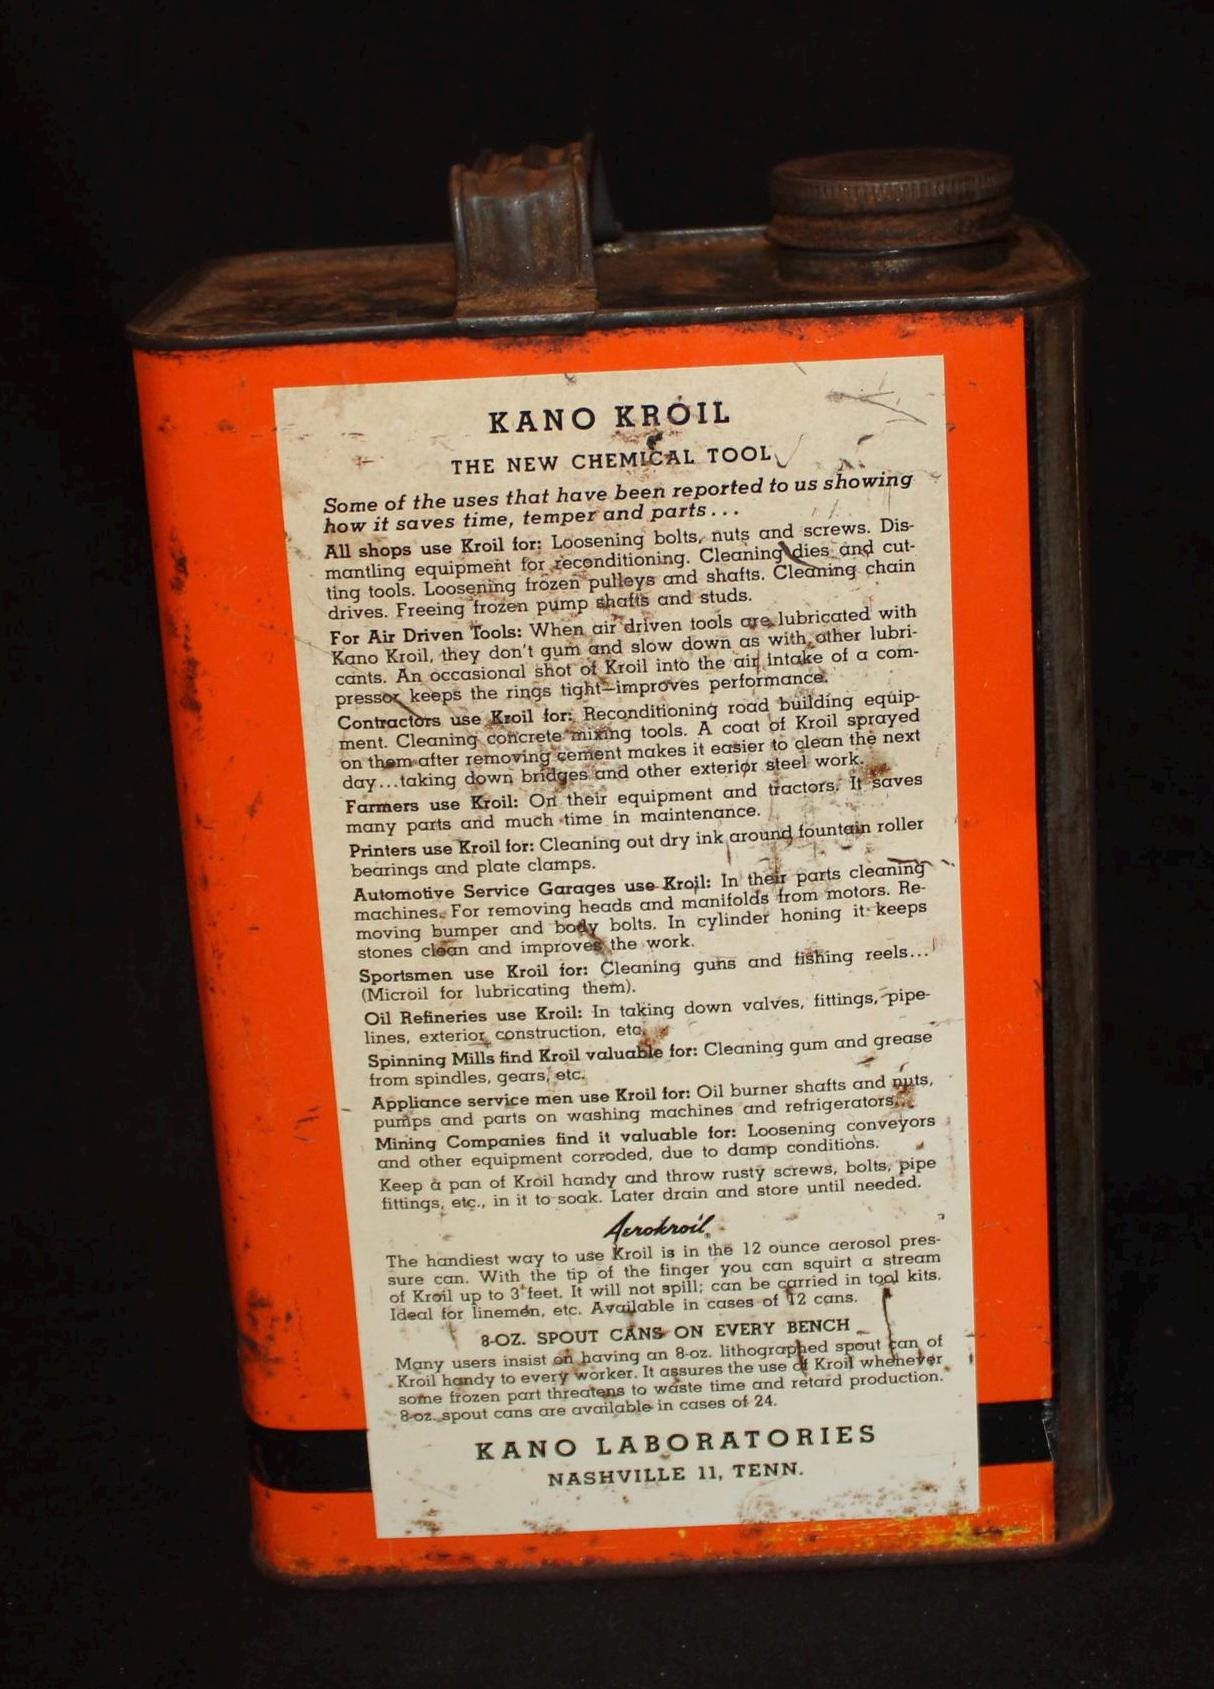 KANO KROIL
THE NEW CHEMICAL TOOL
Some of the uses that have been reported to us showing
how it saves time, temper and parts...
All shops use Kroil for: Loosening bolts, nuts and screws. Dis-
mantling equipment for reconditioning. Cleaning dies and cut-
ting tools. Loosening frozen pulleys and shafts. Cleaning chain
drives. Freeing frozen pump shafts and studs.
For Air Driven Tools: When air driven tools are lubricated with
Kano Kroil, they don't gum and slow down as with other lubri-
cants. An occasional shot of Kroil into the air intake of a com-
pressor keeps the rings tight—improves performance.
Contractors use Kroil for: Reconditioning road building equip-
ment. Cleaning concrete mixing tools. A coat of Kroil sprayed
on them after removing cement makes it easier to clean the next
day...taking down bridges and other exterior steel work.
Farmers use Kroil: On their equipment and tractors. It saves
many parts and much time in maintenance.
Printers use Kroil for: Cleaning out dry ink around fountain roller
bearings and plate clamps.
Automotive Service Garages use Kroil: In their parts cleaning
machines. For removing heads and manifolds from motors. Re-
moving bumper and body bolts. In cylinder honing it keeps
stones clean and improves the work.
Sportsmen use Kroil for: Cleaning guns and fishing reels...
(Microil for lubricating them).
Oil Refineries use Kroil: In taking down valves, fittings, pipe-
lines, exterior construction, etc.
Spinning Mills find Kroil valuable for: Cleaning gum and grease
from spindles, gears, etc.
Appliance service men use Kroil for: Oil burner shafts and nuts,
pumps and parts on washing machines and refrigerators.
Mining Companies find it valuable for: Loosening conveyors
and other equipment corroded, due to damp conditions.
Keep a pan of Kroil handy and throw rusty screws, bolts, pipe
fittings, etc., in it to soak. Later drain and store until needed.
Aerokroil
The handiest way to use Kroil is in the 12 ounce aerosol pres-
sure can. With the tip of the finger you can squirt a stream
of Kroil up to 3 feet. It will not spill; can be carried in tool kits.
Ideal for linemen, etc. Available in cases of 12 cans.
8-OZ. SPOUT CANS ON EVERY BENCH
Many users insist on having an 8-oz. lithographed spout can of
Kroil handy to every worker. It assures the use of Kroil whenever
some frozen part threatens to waste time and retard production.
8-oz. spout cans are available in cases of 24.
KANO LABORATORIES
NASHVILLE 11, TENN.